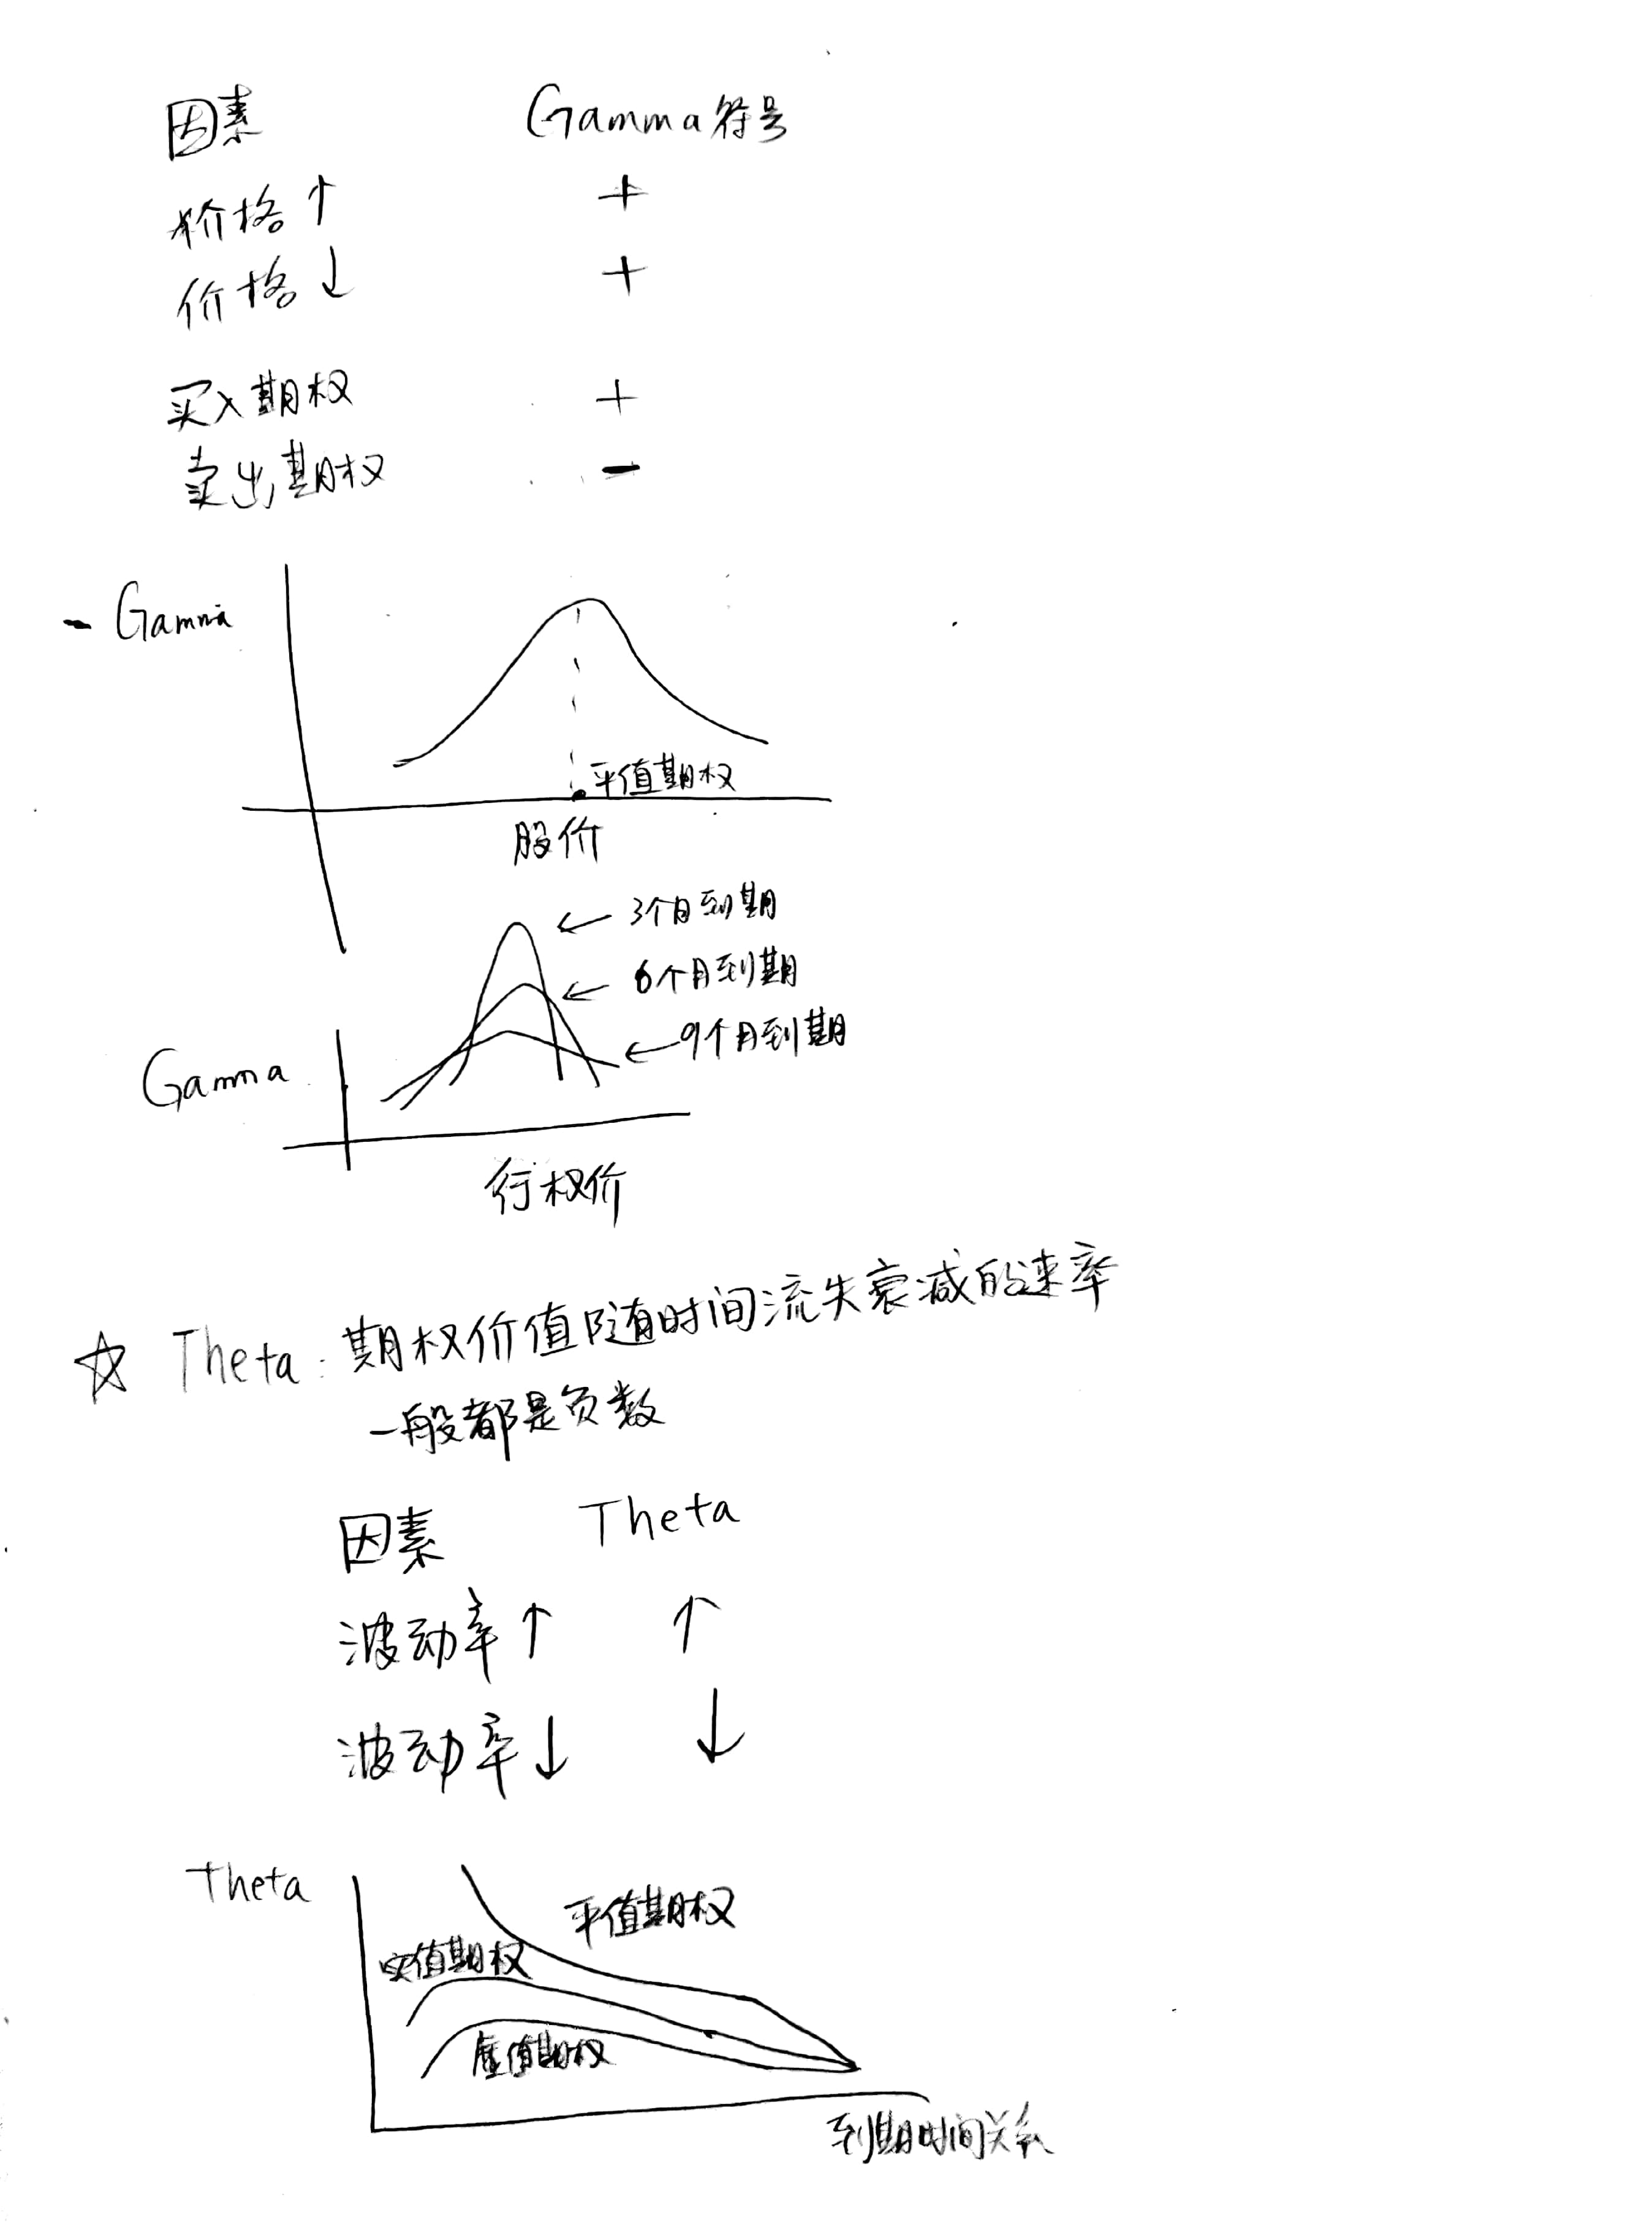 因素 Gamma符号
价格↑ +
价格↓ +
买入期权 +
卖出期权 -
- Gamma
平值期权
股价
← 3个月到期
← 6个月到期
← 9个月到期
Gamma
行权价
☆ Theta: 期权价值随时间流失衰减的速率
一般都是负数
因素 Theta
波动率↑ ↑
波动率↓ ↓
Theta
平值期权
实值期权
虚值期权
到期时间关系